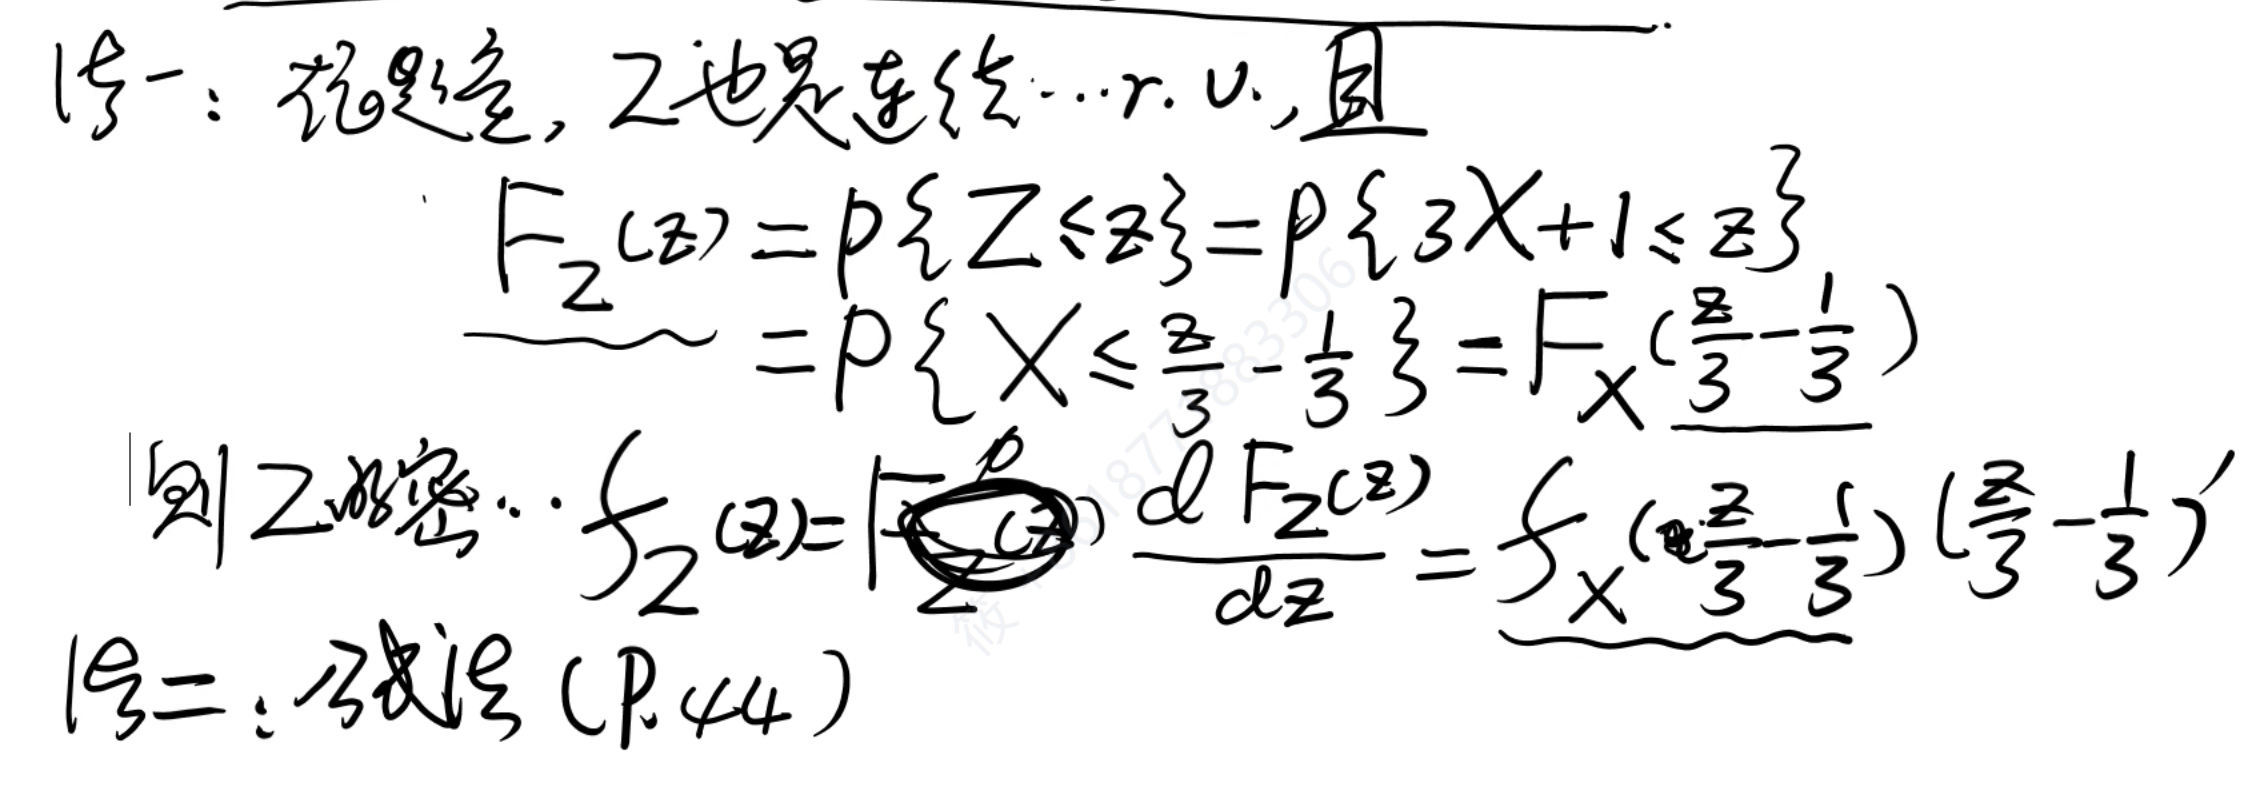 法一：按题意，Z也是连续…r.v.，且
F_Z(z)=P{Z≤z}=P{3X+1≤z}
=P{X≤z/3-1/3}=F_X(z/3-1/3)
则Z的密…f_Z(z)= dF_Z(z)/dz =f_X(z/3-1/3)(z/3-1/3)′
法二：公式法(P.44)